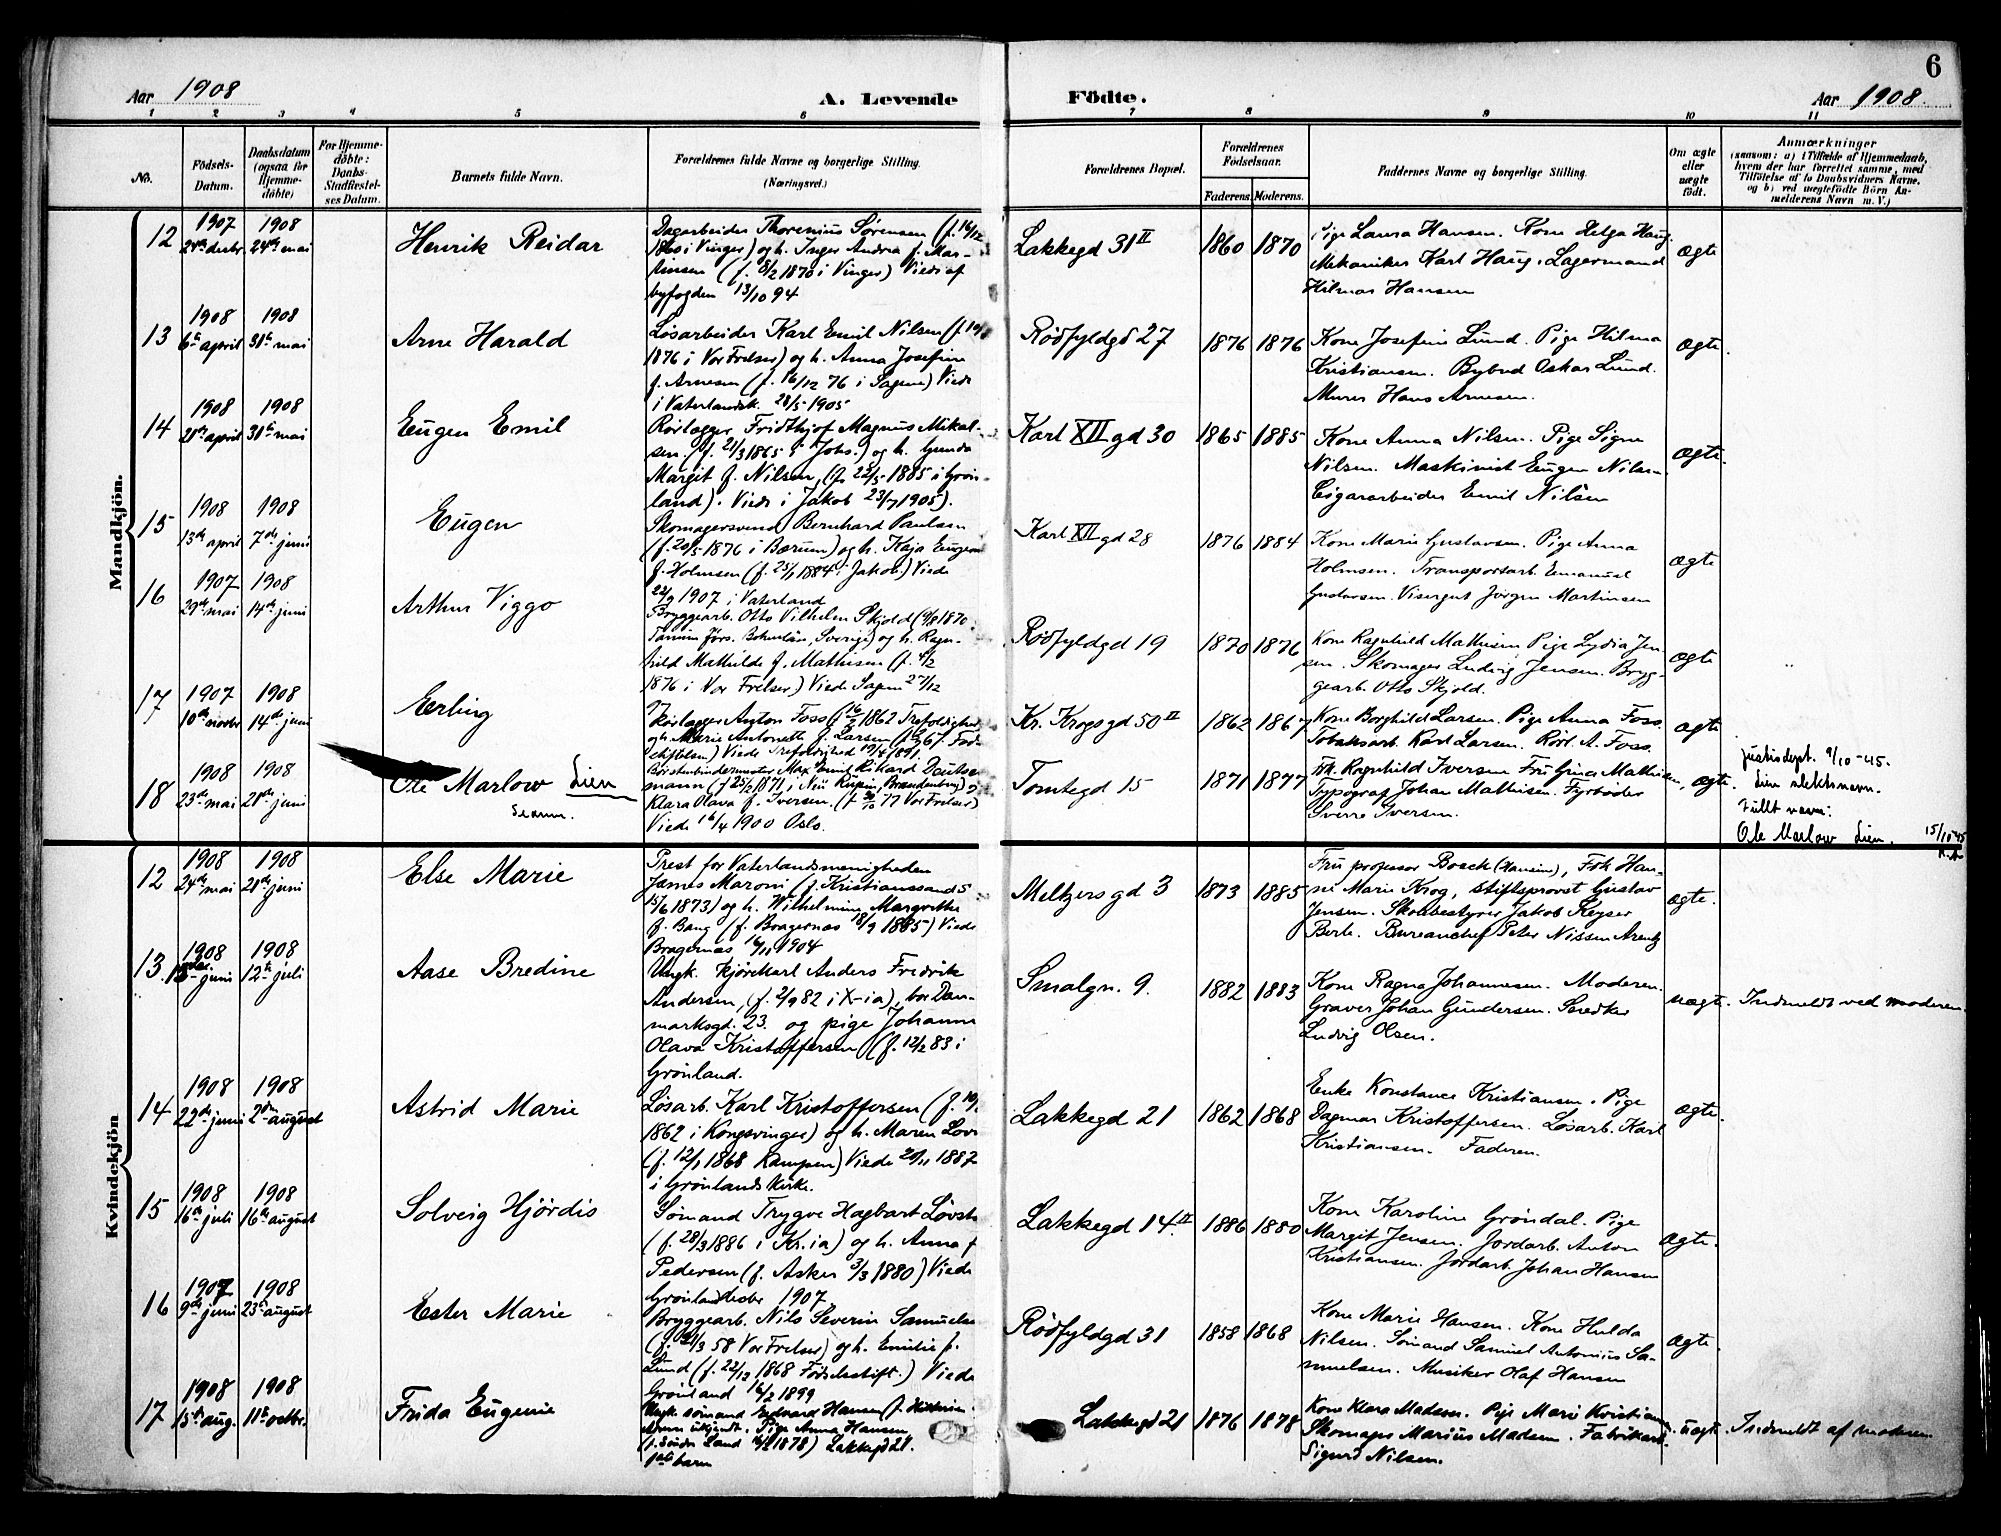 6
Aar 1908
A. Levende
Födte.
Aar 1908.
1 2 3 4 5 6 7 8 9 10 11
No.
Födsels-Datum.
Daabsdatum (ogsaa for Hjemmedöbte)
For Hjemmedöbte: Daabs-Stadfæstelses Datum.
Barnets fulde Navn.
Forældrenes fulde Navne og borgerlige Stilling.
(Næringsvei.)
Forældrenes Bopæl.
Forældrenes Födselsaar.
Faderens. Moderens.
Faddernes Navne og borgerlige Stilling.
Om ægte eller uægte födt.
Anmærkninger
(saasom: a) i Tilfælde af Hjemmedaab, hvem der har forrettet samme, med Tilföielse af to Daabsvidners Navne, og b) ved uægtefödte Börn Anmelderens Navn m. V.)
Mandkjön.
12
1907 1908
24de mai
Henrik Reidar
Dagarbeider Thorenius Sørensen (f. 14/12
1860 i Vinger) og h. Inger Andrea f. Mar-
tensen (f. 8/2 1870 i Vinger) Viede af
byfogden 13/10 94
Lakkegd 31 II
1860 1870
Pige Laura Hansen. Kone Helga Haug.
Mekaniker Karl Haug. Lagermand
Hilmar Hansen
ægte
13
1908 1908
6te april 31te mai
Arne Harald
Løsarbeider Karl Emil Nilsen
1876 i Vor Frelser) og h. Anna Josefine
f. Arnesen (f. 16/12 76 i Sagene) Viede
i Vaterlandsk. 28/5 1905
Rödfyldgd 27
1876 1876
Kone Josefine Lund. Pige Hilma
Kristiansen. Bybud Oskar Lund.
Murer Hans Arnesen.
ægte.
14
1908 1908
april 31te mai
Eugen Emil
Rørlægger Fridthjof Magnus Mikal-
sen. (f. 21/3 1865 i Johs.) og h. Gunda
Margit f. Nilsen, (f. 22/5 1885 i Grøn-
land). Viede i Jakob 23/7 1905).
Karl XII gd 30
1865 1885
Kone Anna Nilsen. Pige Signe
Nilsen. Maskinist Eugen Nilsen
Cigararbeider Emil Nilsen
ægte.
15
1908 1908
13de april 7de juni
Eugen
Skomagersvend Bernhard Paulsen
(f. 20/5 1876 i Bærum) og h. Kaja Eugenie
f. Holmsen (f. 25/1 1884 i Jakob.) Viede
22/9 1907 i Vaterland
Karl XII gd 28
1876 1884
Kone Marie Gustavsen. Pige Anna
Holmsen. Transportarb. Emanuel
Gustavsen. Visergut Jørgen Martinsen
ægte
16
1907 1908
29de mai 14de juni
Arthur Viggo
Bryggearb. Otto Vilhelm Skjold
Bohuslän, Sverige) og h. Ragn-
hild Mathilde f. Mathisen (f. 4/2
1876 i Vor Frelser.) Viede Sagene 27/12
Rödfyldgd 19
1870 1876
Kone Ragnhild Mathisen Pige Lydia Jen-
sen. Skomager Ludvig Jensen. Bryg-
gearb. Otto Skjold.
ægte
17
1907 1908
10de novbr 14de juni
Erling
Rørlægger Anton Foss 1862 Trefoldighed
og h. Marie Antonette f. Larsen
stiftelsen) Viede Trefoldighed 19/4 1891.
Kr. Krogsgd 50 II
1862 1867
Kone Borghild Larsen. Pige Anna Foss.
Tobaksarb. Karl Larsen. Rørl. A. Foss.
ægte
18
1908 1908
23de mai juni
Ole Marlow Lien
Børstenbindermester Max Emil Rikard Deutsch-
mann (f 25/2 1871 i Neu Ruppin, Brandenburg)
Klara Olava f. Iversen. (f. 77 Vor Frelser)
Viede 16/4 1900 Oslo.
Tomtegd 15
1871 1877
Frk. Ragnhild Iversen Fru Gina Mathisen,
Typograf Johan Mathisen. Fyrbøder
Sverre Iversen.
ægte.
Justisdept. 9/10-45.
Lien slektsnavn.
Fullt navn:
Ole Marlow Lien.
15/10 45
Kvindekjön
12
1908 1908
24de mai 21de juni
Else Marie
Prest for Vaterlandsmenigheden
James Maroni (f. Kristianssand S
15/6 1873) og h. Wilhelmine Margrethe
f. Bang (f. Bragernæs 18/9 1885) Viede
Bragernæs 16/11 1904
Meltzersgd 3
1873 1885
Fru professor Boeck (Hansine), Frk Han-
ne Marie Krog, stiftsprovst Gustav
Jensen. Skolebestyrer Jakob Keyser
Berle. Bureauchef Peter Nissen Arentz
ægte.
13
1908 1908
juni 12te juli
Aase Bredine
Ungk. kjørekarl Anders Fredrik
Andersen, (f. 2/9 82 i X-ia), bor Dan-
marksgd. 23. og pige Johanne
Olava Kristoffersen (f. 12/2 83 i
Grønland.
Smalgn. 9.
1882 1883
Kone Ragna Johannesen. Moderen.
Graver Johan Gundersen. Snedker
Ludvig Olsen.
uægte.
Indmeldt ved moderen.
14
1908 1908
22de juni 2den august
Astrid Marie
Løsarb. Karl Kristoffersen
1862 i Kongsvinger) og h. Maren Lov
(f. 12/1 1868 Kampen) Viede 20/11 1887
i Grønlands kirke.
Lakkegd 21
1862 1868
Enke Konstance Kristiansen. Pige
Dagmar Kristoffersen. Løsarb. Karl
Kristiansen. Faderen.
ægte.
15
1908 1908
16de juli 16de august
Solveig Hjørdis
Sømand Trygve Hagbart Løvst
(f. 28/3 1886 i Kr.ia) og h. Anna f
Pedersen (f. Asker 3/3 1880) Viede
Grønland 1907
Lakkegd 14 II
1886 1880
Kone Karoline Grøndal. Pige
Margit Jensen. Jordarb. Anton
Kristiansen. Jordarb. Johan Hansen
ægte.
16
1907 1908
9de juni 23de august
Ester Marie
Bryggearb. Nils Severin Samuelse
(f. 21/3 58 Vor Frelser) og h. Emilie f.
Lund (f. 22/12 1868 Fødselsstift.) Viede
Grønland 16/2 1899
Rödfyldgd 31
1858 1868
Kone Marie Hansen. Kone Hulda
Nilsen. Sømand Samuel Antonius Sa-
muelsen. Musiker Olaf Hansen
ægte.
17
1908 1908
15de aug. 11te octbr.
Frida Eugenie
Ungk sømand Edvard Hansen
Pige Anna Hansen
(f. Søndre Land 1878) Lakkegd 21.
1ste barn
Lakkegd 21
1876 1878
Kone Klara Madsen. Pige Marie Kristian
Skomager Marius Madsen. Fabrikarb.
Sigurd Nilsen.
uægte.
Indmeldt af moderen